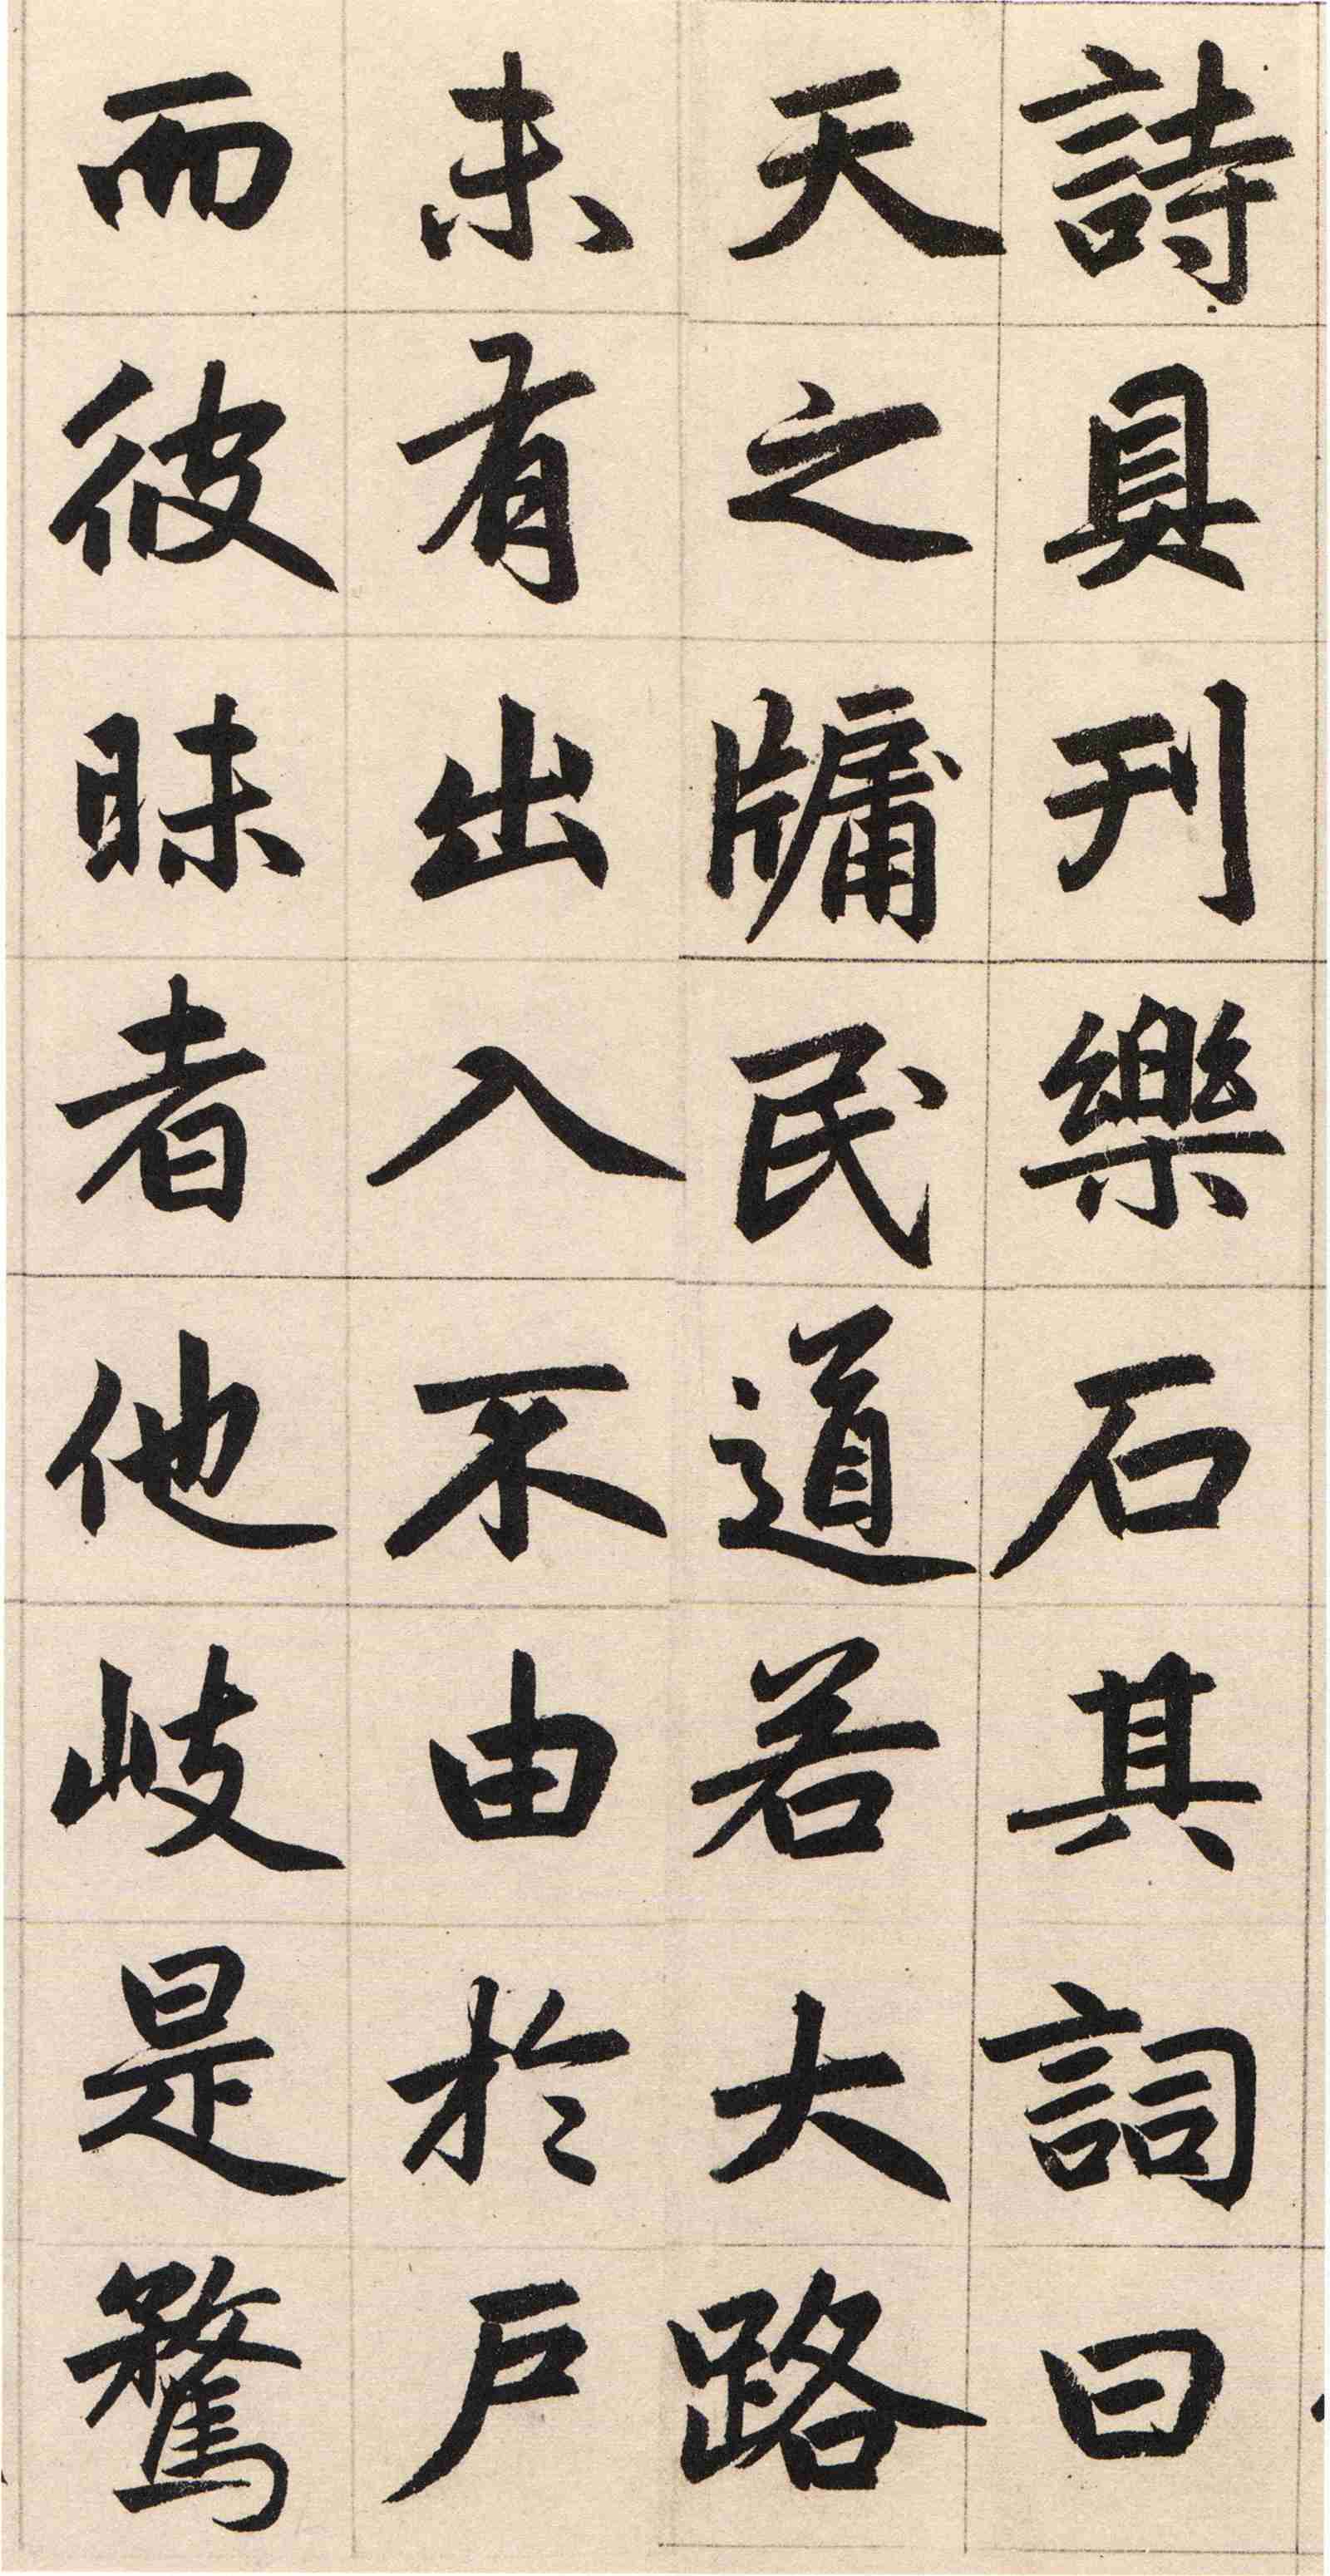 詩具刊樂石其詞曰
天之牖民道若大路
未有出入不由於戶
而彼昧者他岐是騖